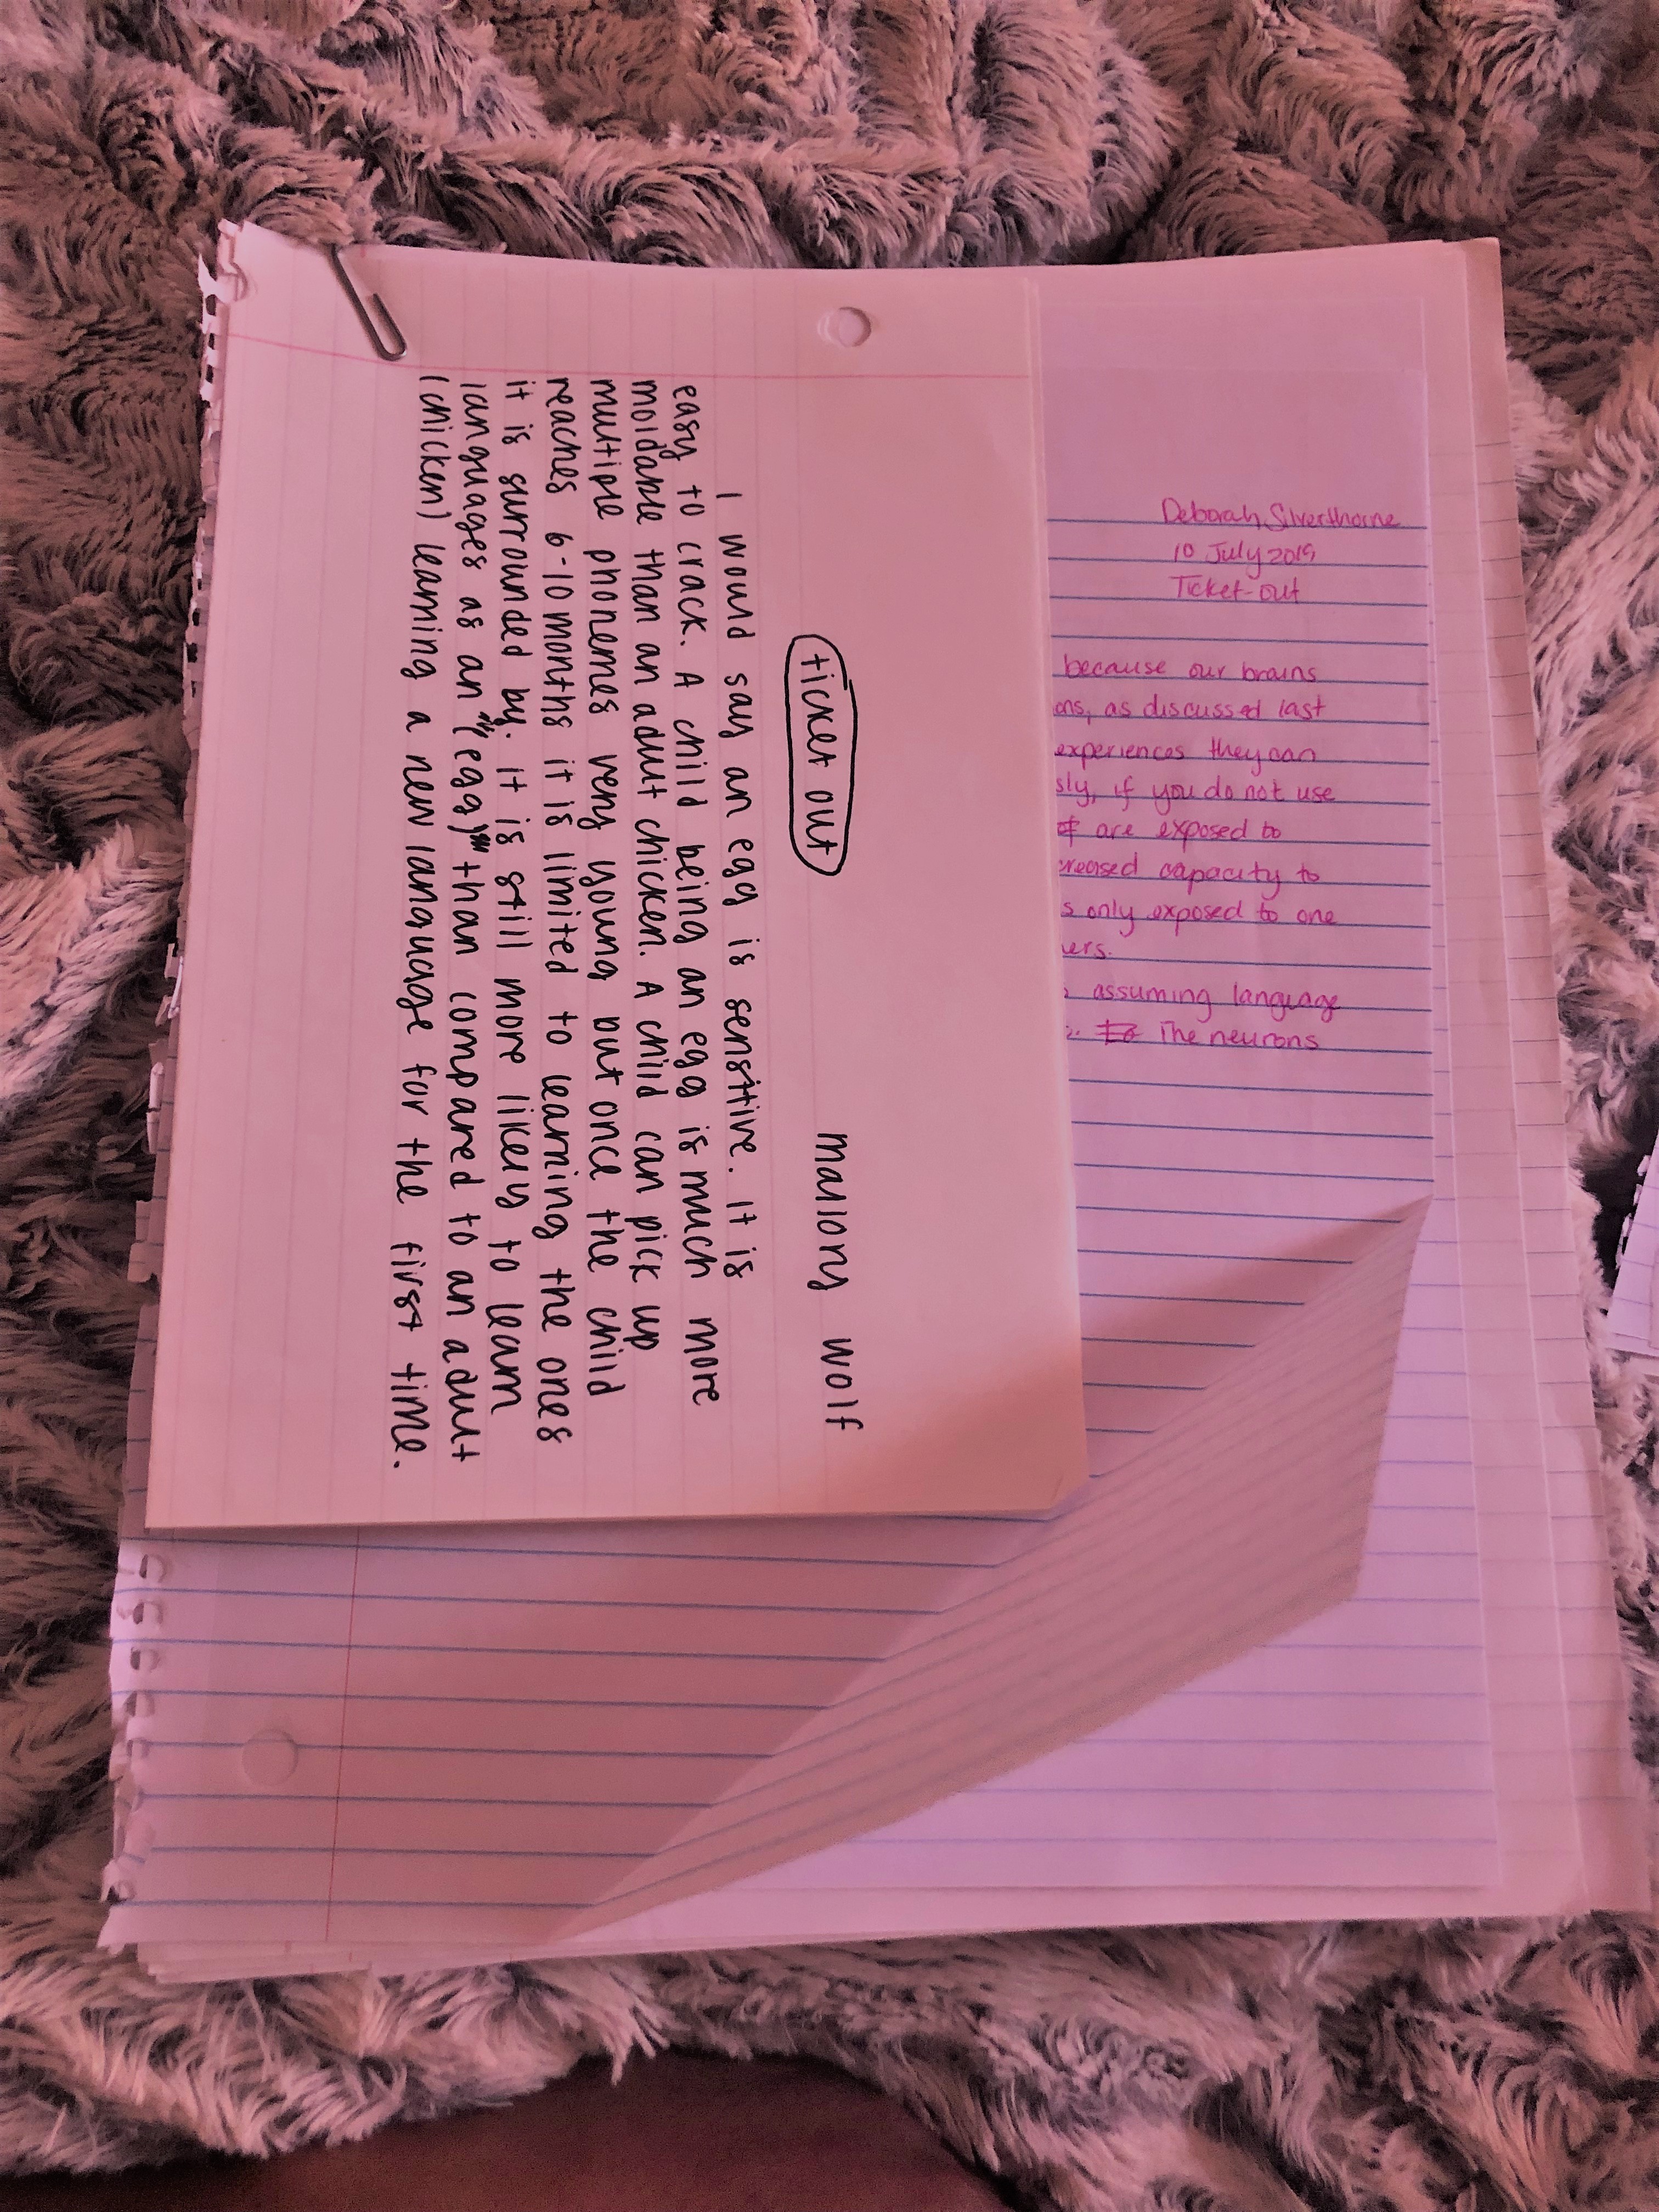 mallory wolf
ticket out
I would say an egg is sensitive. It is
easy to crack. A child being an egg is much more
moldable than an adult chicken. A child can pick up
multiple phonemes very young but once the child
reaches 6-10 months it is limited to learning the ones
it is surrounded by. it is still more likely to learn
languages as an "(egg)" than compared to an adult
(chicken) learning a new language for the first time.
Deborah Silverthorne
10 July 2019
Ticket-out
because our brains
ons, as discussed last
experiences they can
sly, if you do not use
are exposed to
creased capacity to
s only exposed to one
ers.
assuming language
The neurons